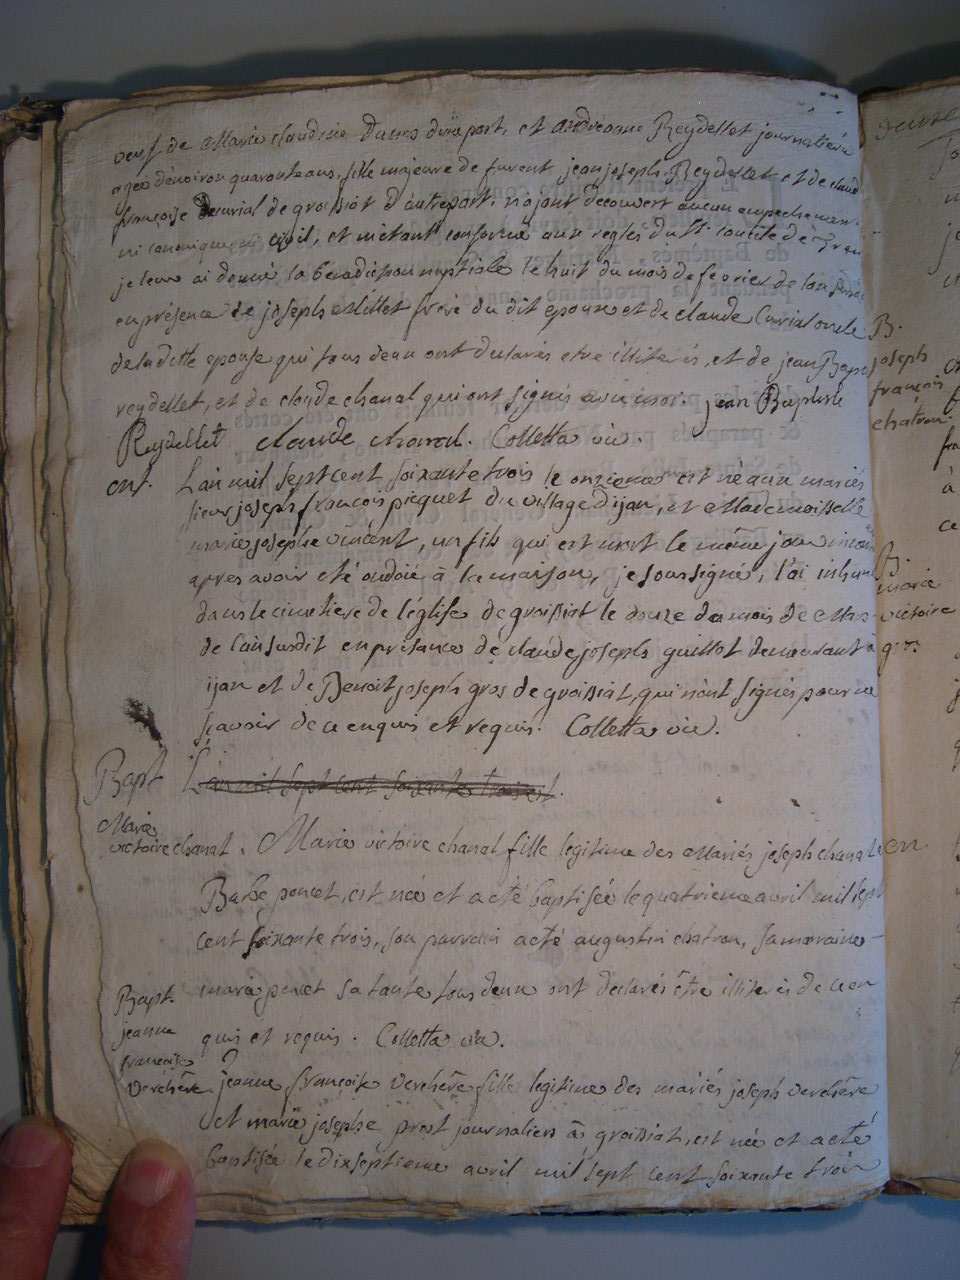 veuf de Marie claudine Dumas d'une part, et andréanne Reydellet journalière
agée d'environ quarante ans, fille majeure de furent jean joseph Reydellet et de claud
françoise Curial de groissiat d'autre part. n'ajant découvert aucun empechement
ni canonique ni civil, et m'étant conformé aux regles du St. concile de Tren
je leur ai donné la bénédiction nuptiale le huit du mois de fevrier de l'an
en présence de joseph Millet frère du dit epoux et de claude Curial oncle
de la ditte epouse qui tous deux ont déclarés etre illiterés, et de jean Bap
reydellet, et de claude chanal qui ont signés avec moi. jean Baptiste
Reydellet claude chanal. Colletta vic.
ent. L'an mil sept cent soixante trois le onzieme est né aux mariés
sieur joseph françois picquet du village d'ijan, et Mademoisselle
marie josephe vincent, un fils qui est mort le même jour
apres avoir eté ondoié à la maison, je soussigné, l'ai inhum
dans le cimetiere de l'église de groissiat le douze du mois de Mars
de l'an susdit en présence de claude joseph guillot demeurant à
ijan et de Benoit joseph gros de groissiat, qui n'ont signés pour ne
sçavoir de ce enquis et requis. Colletta vic.
Bapt L'an mil sept cent soixante trois et
Marie
victoire chanal. Marie victoire chanal fille legitime des Mariés joseph chanal
poncet, est née et a eté baptisée le quatrieme avril mil sept
cent soixante trois, son parrain a eté augustin chatron, sa maraine
marie poncet sa tante tous deux ont déclarés être illiterés de ce en
quis et requis. Colletta vic.
Bapt.
jeanne
françoise
verchère jeanne françoise verchère fille legitime des mariés joseph verchère
et marie josephe prost journaliers à groissiat, est née et a eté
baptisée le dixseptieme avril mil sept cent soixante trois
B.
joseph
françois
chatron
B.
marie
victoire
gros
en